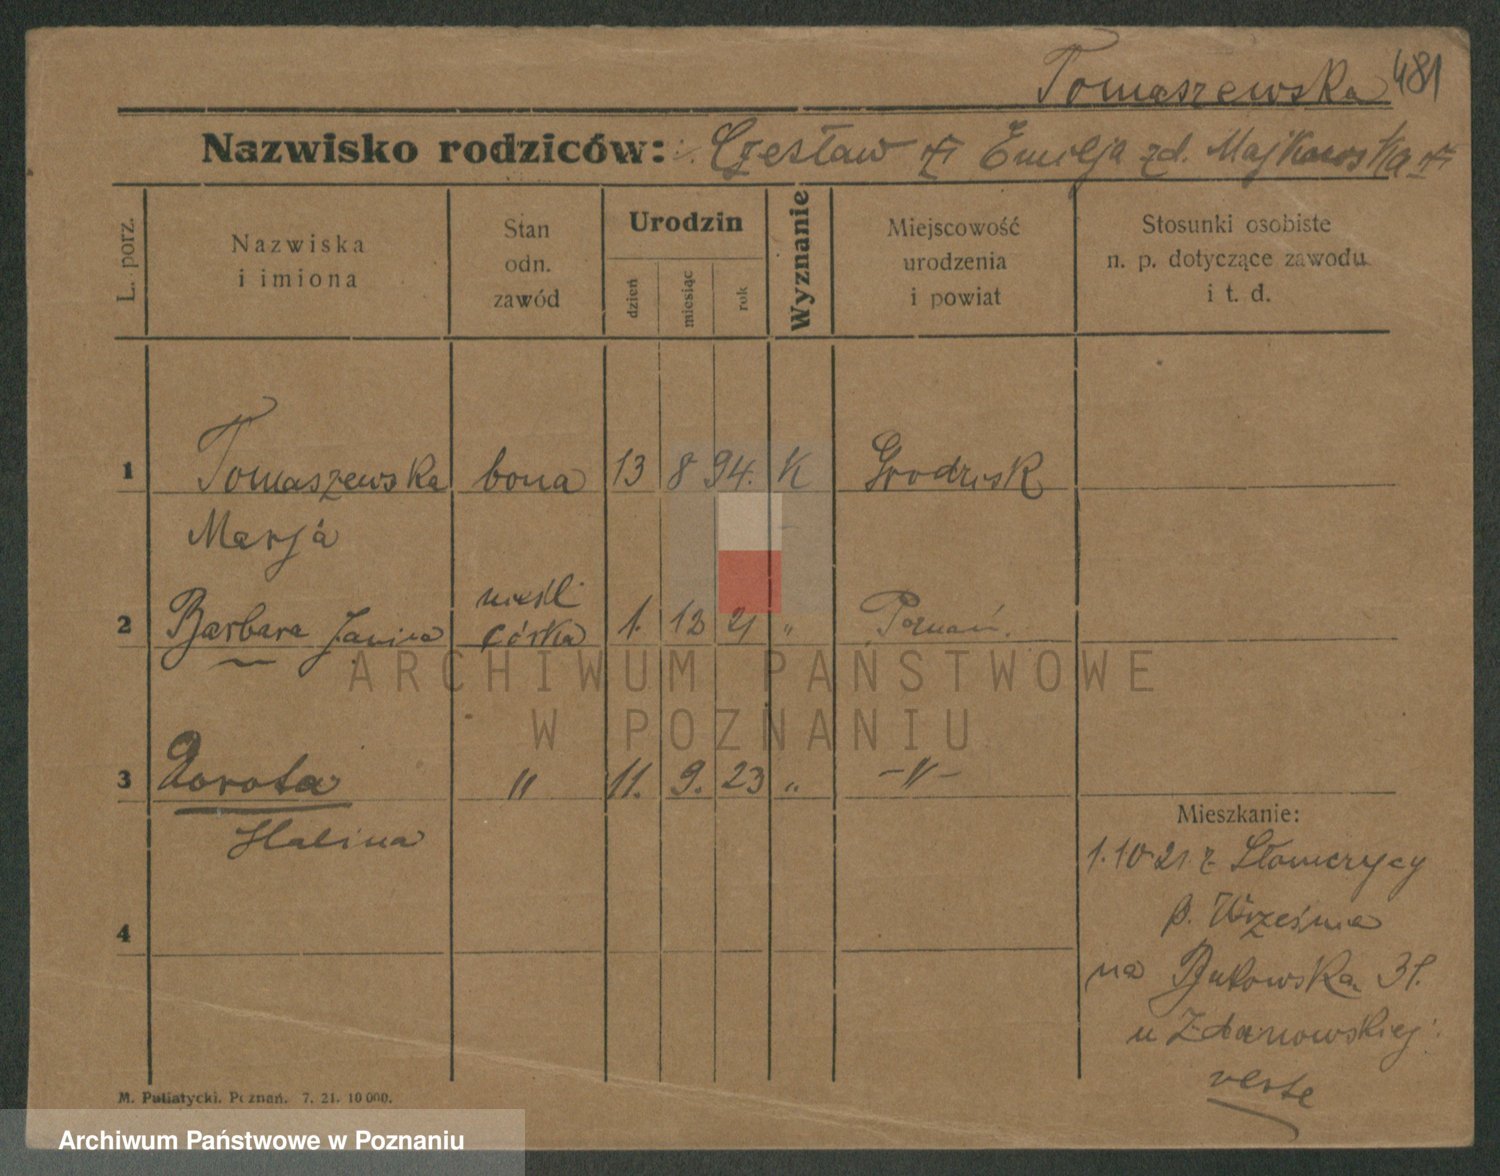 Tomaszewska 481
Nazwisko rodziców: Czesław Emilja zd. Majkowska
L. porz.
Nazwiska
i imiona
Stan
odn.
zawód
Urodzin
dzień
miesiąc
rok
Wyznanie
Miejscowość
urodzenia
i powiat
Stosunki osobiste
n. p. dotyczące zawodu
i t. d.
1 Tomaszewska bona 13 8 94. K Grodzisk
Marja
nieśl
2 Barbara Janina córka 1. 12 21 " Poznań.
3 Dorota " 11. 9. 23 " -"-
Halina
4
Mieszkanie:
1.10 21 z Słomczycy
p. Września
na Bukowska 31.
u Zdanowskiej.
verte
M. Putiatycki. Poznań. 7. 21. 10 000.
ARCHIWUM PAŃSTWOWE
W POZNANIU
Archiwum Państwowe w Poznaniu